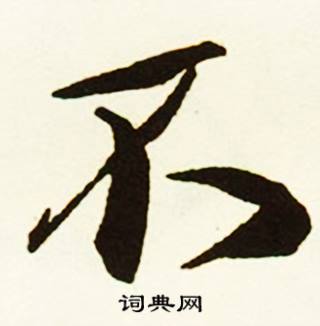 不
词典网